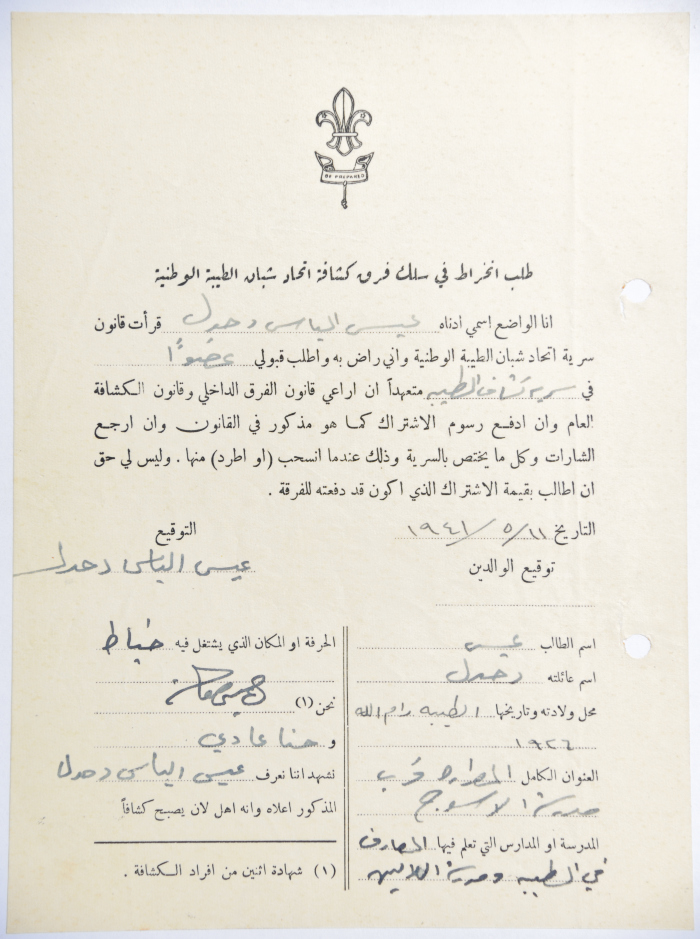 BE PREPARED
طلب انخراط في سلك فرق كشافة اتحاد شبان الطيبة الوطنية
انا الواضع اسمي ادناه عيسى الياس دحدل قرأت قانون
سرية اتحاد شبان الطيبة الوطنية واني راض به واطلب قبولي عضواً
في سرية كشاف الطيبه متعهداً ان اراعي قانون الفرق الداخلي وقانون الكشافة
العام وان ادفع رسوم الاشتراك كما هو مذكور في القانون وان ارجع
الشارات وكل ما يختص بالسرية وذلك عندما انسحب (او اطرد) منها . وليس لي حق
ان اطالب بقيمة الاشتراك الذي اكون قد دفعته للفرقة .
التاريخ ١١/٥/١٩٤١
التوقيع
توقيع الوالدين
عيسى الياس دحدل
اسم الطالب عيسى
اسم عائلته دحدل
محل ولادته وتاريخها الطيبه رام الله
١٩٢٦
العنوان الكامل قرب
مدرسة
المدرسة او المدارس التي تعلم فيها المعارف
في الطيبه ومدرسة اللاتين
الحرفة او المكان الذي يشتغل فيه خياط
نحن (١)
و حنا عادي
نشهد اننا نعرف عيسى الياس دحدل
المذكور اعلاه وانه اهل لان يصبح كشافاً
(١) شهادة اثنين من افراد الكشافة .